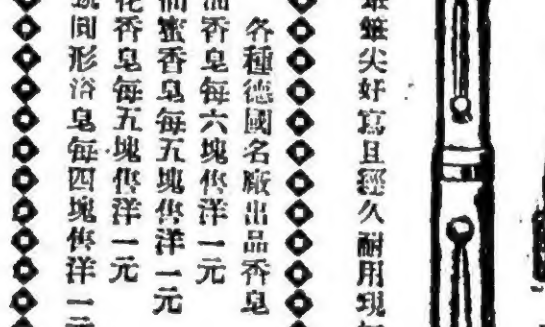 筆尖好寫且經久耐用現
各種德國名廠出品香皂
香皂每六塊售洋一元
蜜香皂每五塊售洋一元
花香皂每五塊售洋一元
同形浴皂每四塊售洋一元